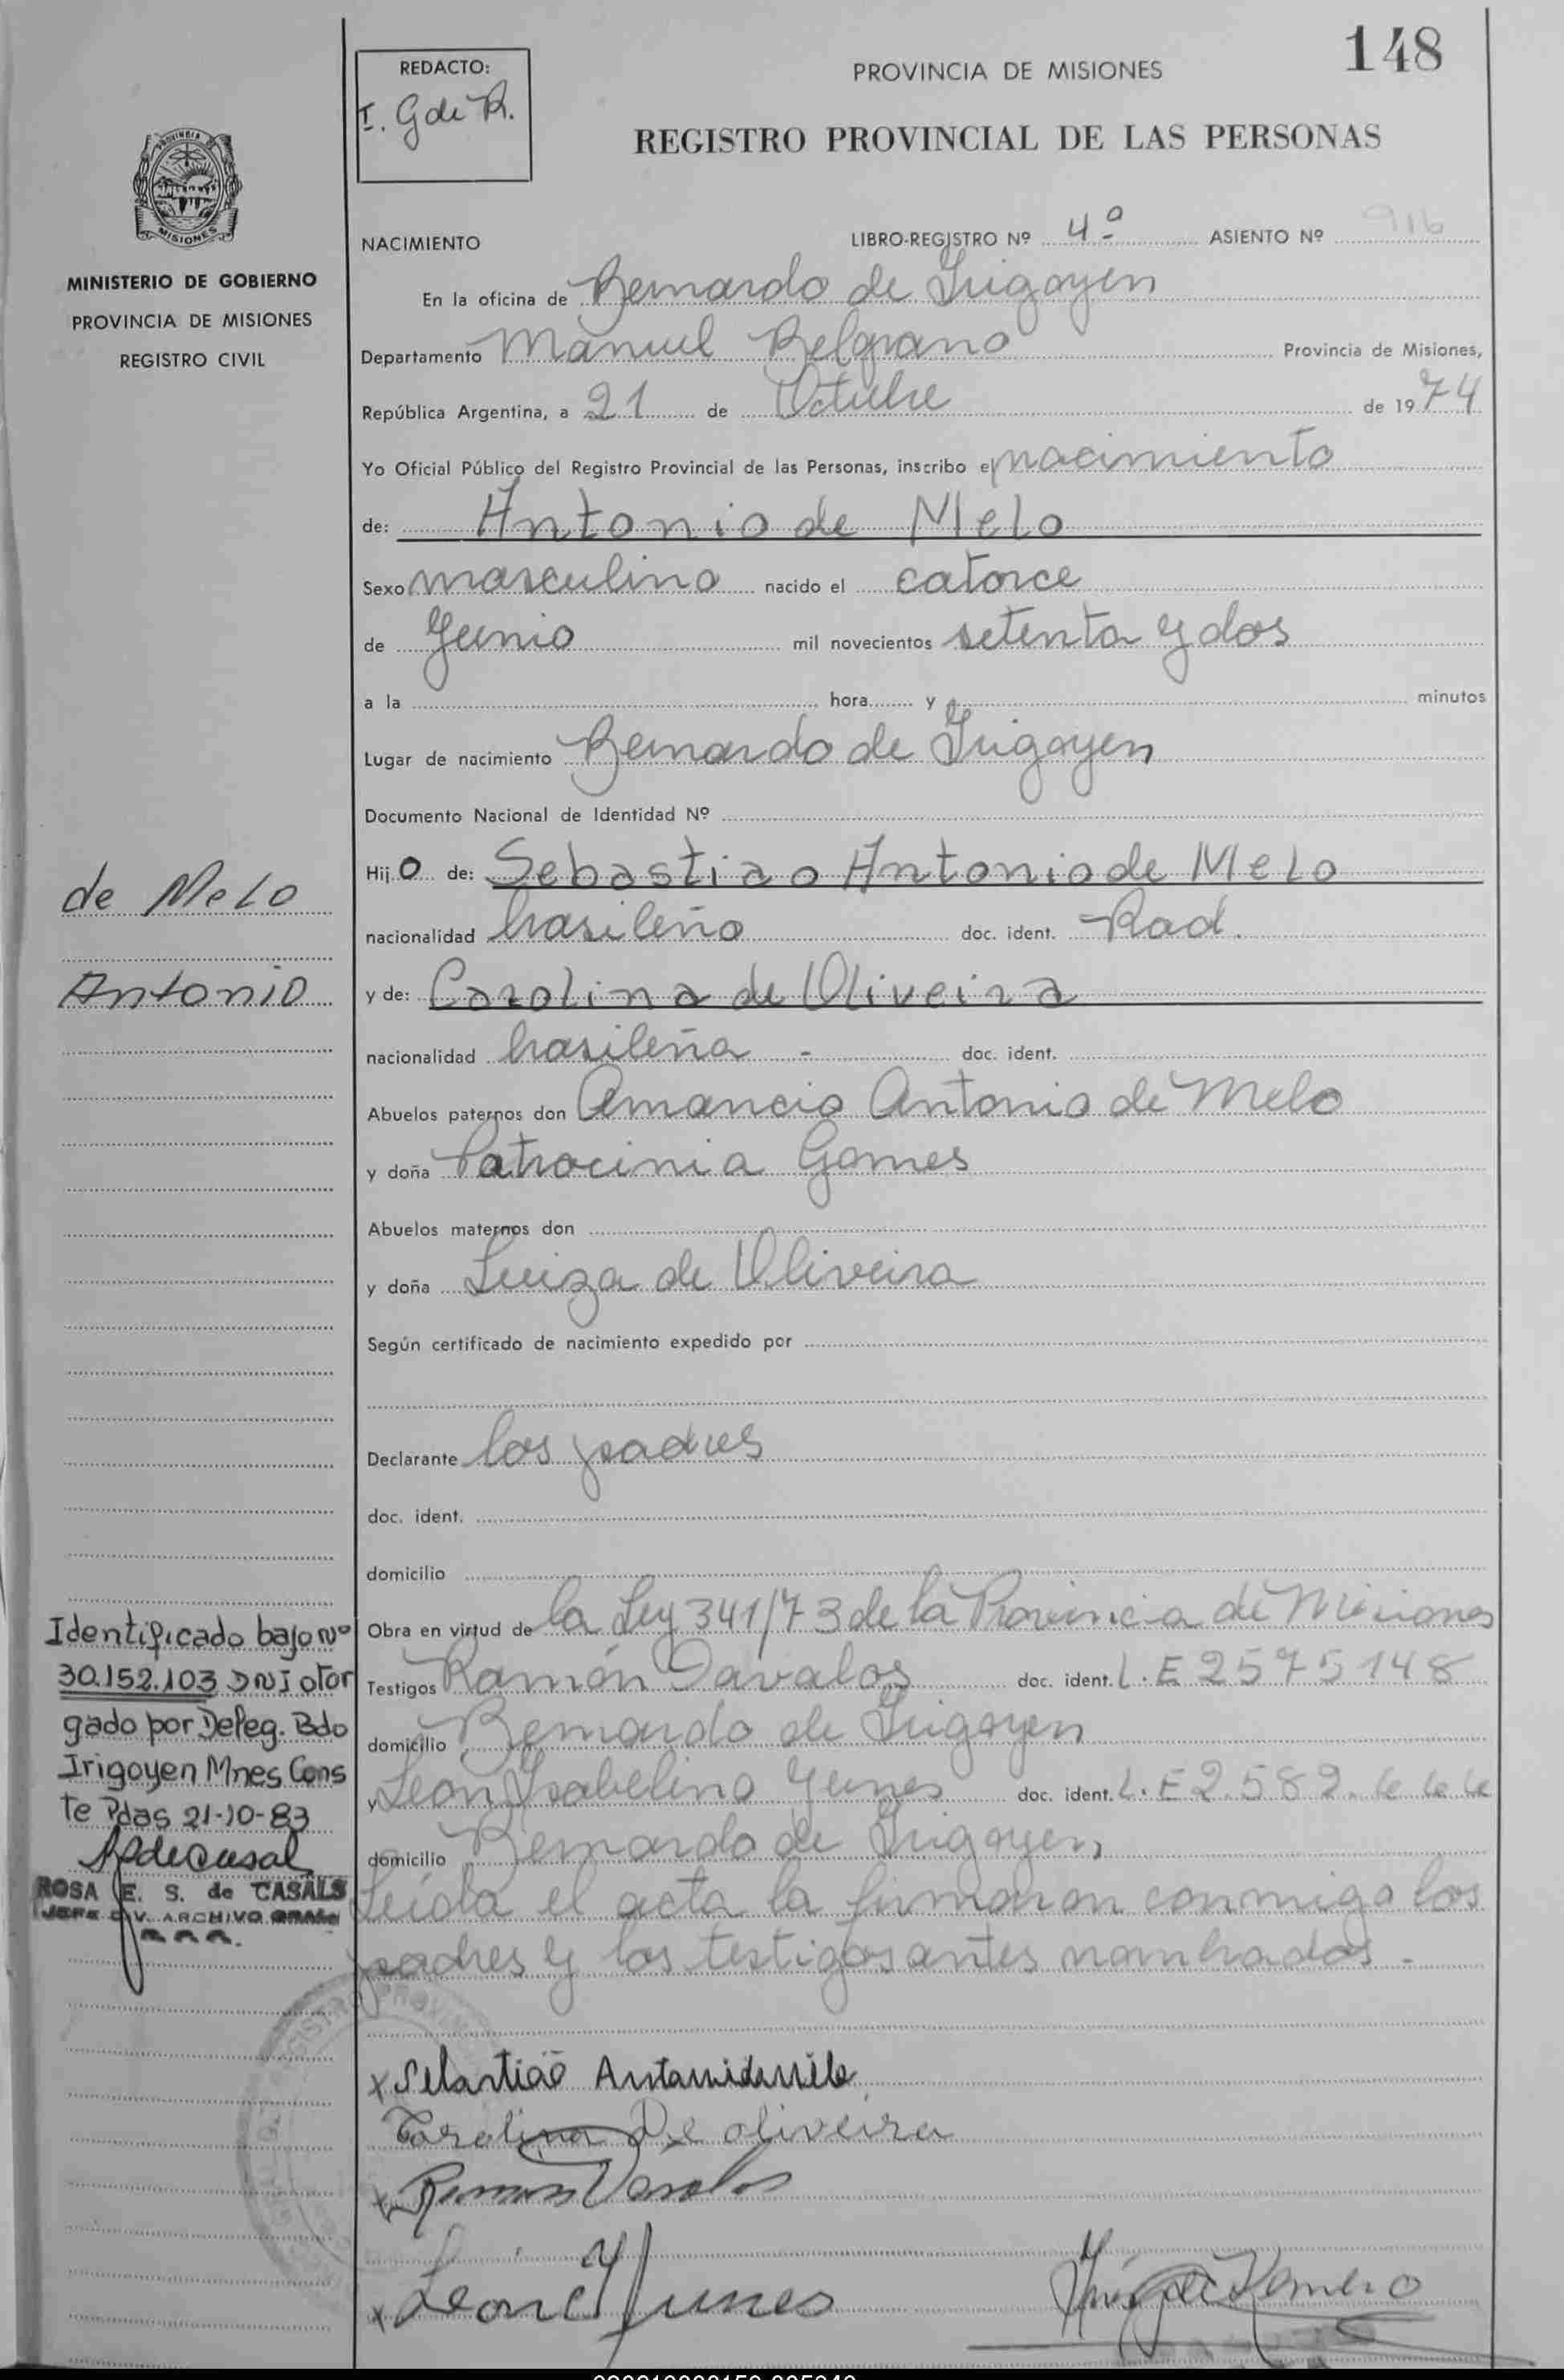 148
REDACTO:
I. G de R.
PROVINCIA DE MISIONES
REGISTRO PROVINCIAL DE LAS PERSONAS
PROVINCIA
MISIONES
MINISTERIO DE GOBIERNO
PROVINCIA DE MISIONES
REGISTRO CIVIL
NACIMIENTO LIBRO-REGISTRO Nº 4º ASIENTO Nº 916
En la oficina de Bernardo de Irigoyen
Departamento Manuel Belgrano Provincia de Misiones,
República Argentina, a 21 de Octubre de 1974
Yo Oficial Público del Registro Provincial de las Personas, inscribo el nacimiento
de: Antonio de Melo
Sexo masculino nacido el catorce
de Junio mil novecientos setenta y dos
a la hora y minutos
Lugar de nacimiento Bernardo de Irigoyen
Documento Nacional de Identidad Nº
Hijo de: Sebastiao Antonio de Melo
nacionalidad brasileño doc. ident. Rad.
y de: Carolina de Oliveira
nacionalidad brasileña - doc. ident.
Abuelos paternos don Amancio Antonio de Melo
y doña Patrocinia Gomes
Abuelos maternos don
y doña Luiza de Oliveira
Según certificado de nacimiento expedido por
Declarante los padres
doc. ident.
domicilio
Obra en virtud de la Ley 341/73 de la Provincia de Misiones
Testigos Ramón Davalos doc. ident. L.E 2575148
domicilio Bernardo de Irigoyen
y Leon Isabelino Yunes doc. ident. L.E 2.582.666
domicilio Bernardo de Irigoyen,
Leída el acta la firmaron conmigo los
padres y los testigos antes nombrados.-
de Melo
Antonio
Identificado bajo Nº
30.152.103 DNI otor
gado por Deleg. Bdo
Irigoyen Mnes Cons
te Pdas 21-10-83
ROSA E. S. de CASALS
JEFE DIV. ARCHIVO GRAL
x Sebastião Antonio de Melo
Carolina De oliveira
x Ramon Davalos
x Leon I Yunes